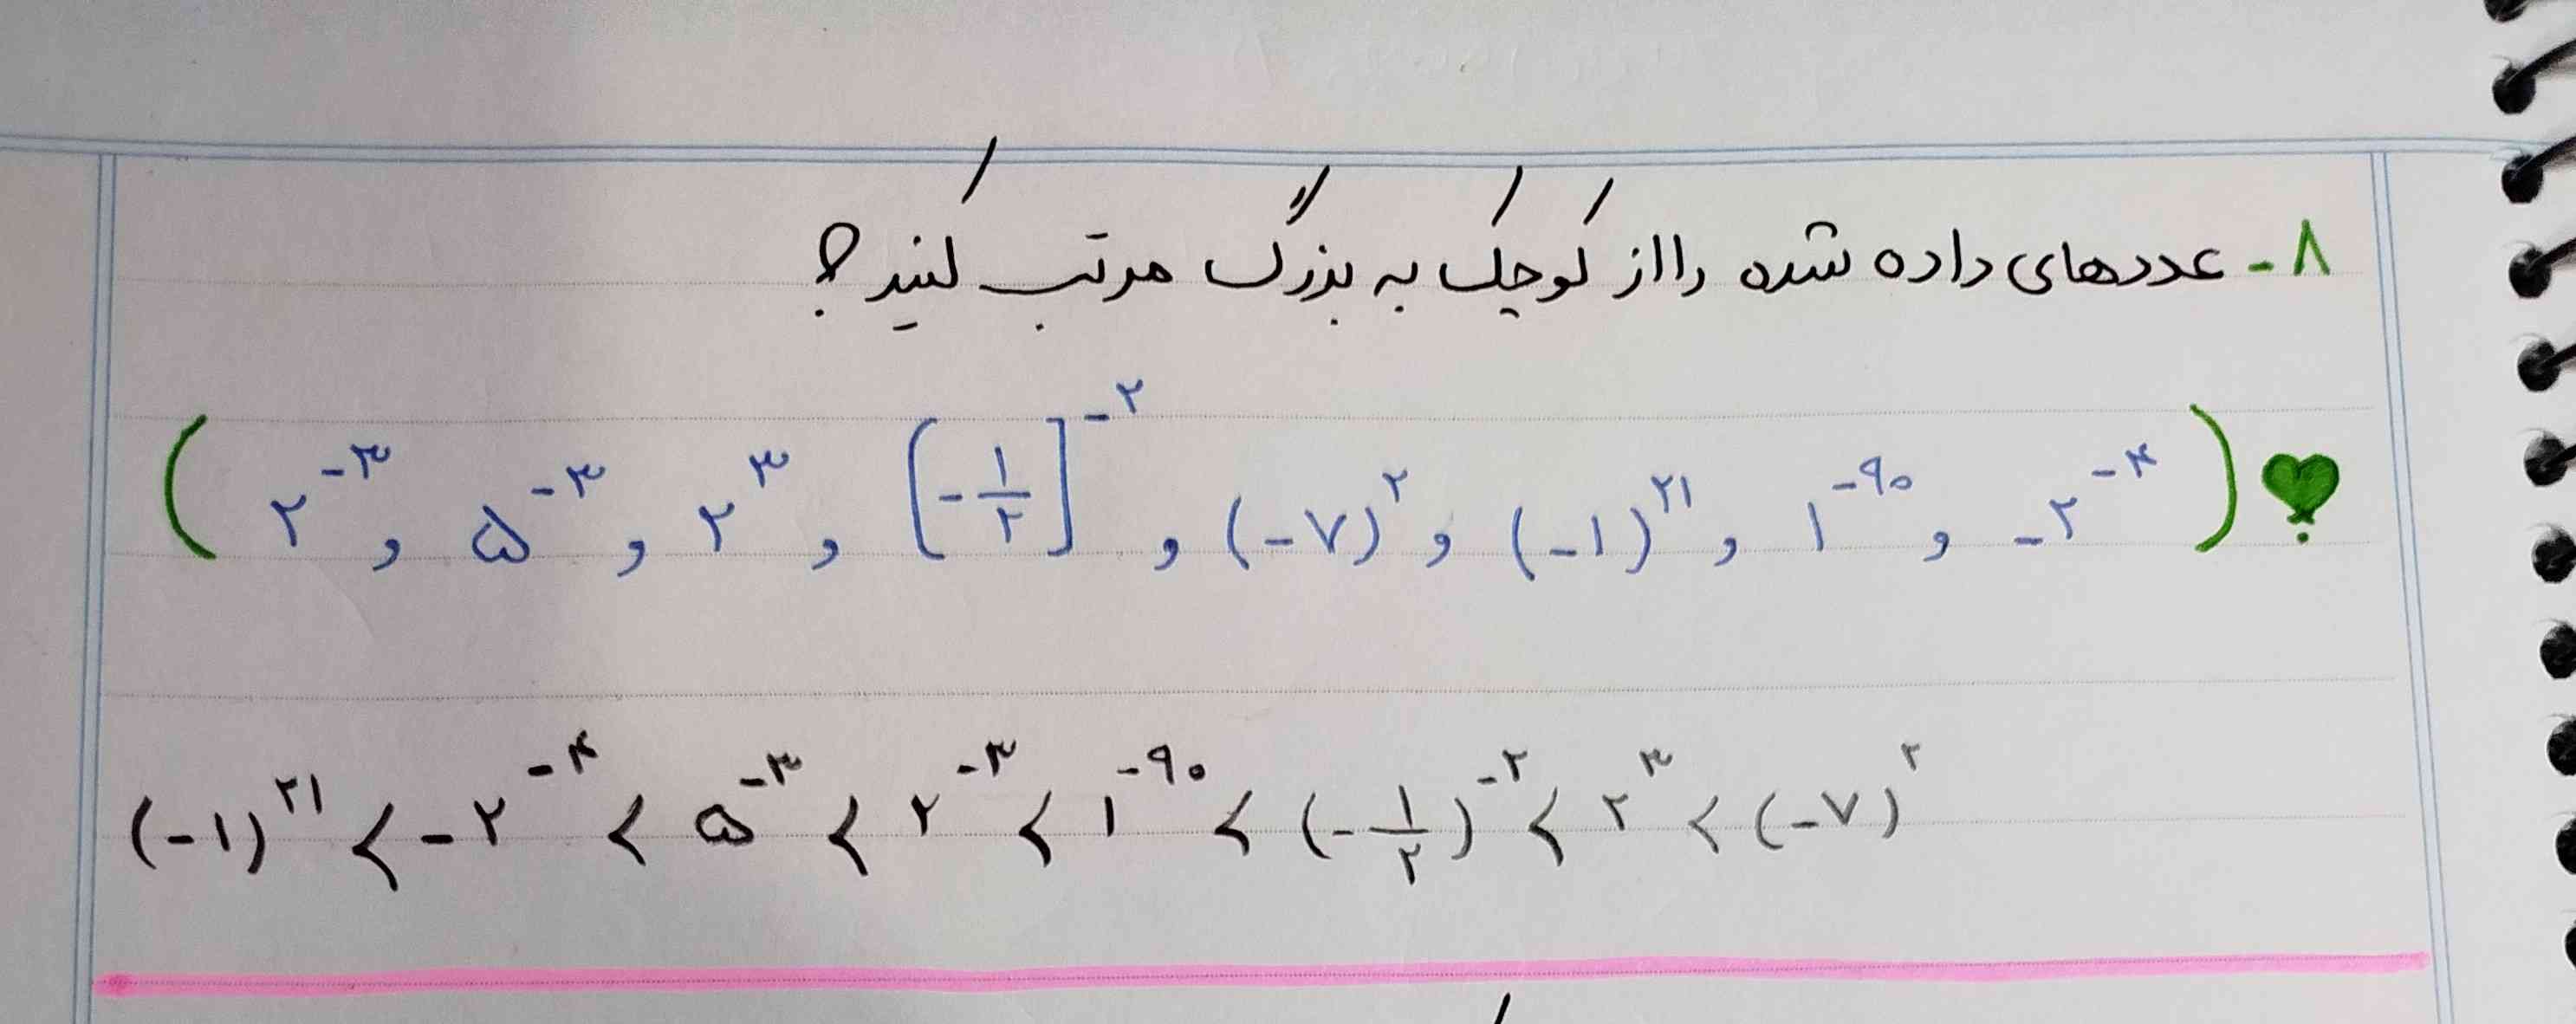 ۸- عددهای داده شده را از کوچک به بزرگ مرتب کنید؟
(۲^-۳ , ۵^-۳ , ۲^۳ , [-۱/۲]^-۲ , (-۷)^۲ , (-۱)^۲۱ , ۱^-۹۰ , -۲^-۴)
(-۱)^۲۱ < -۲^-۴ < ۵^-۳ < ۲^-۳ < ۱^-۹۰ < (-۱/۲)^-۲ < ۲^۳ < (-۷)^۲